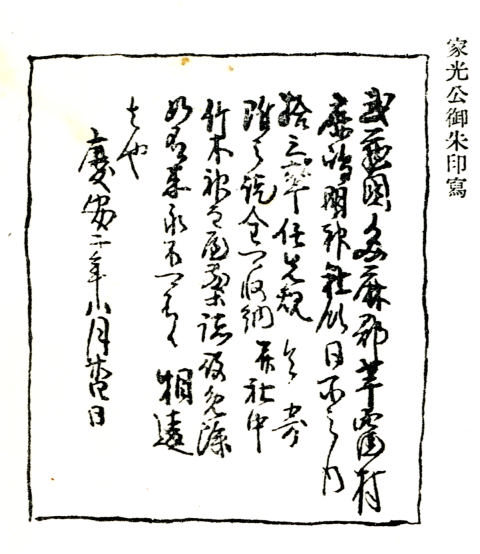 家光公御朱印寫
武蔵國多麻郡芋窪村
鹿嶋明神社領同所之内
拾三 任先規令寄
附之訖全可収納并社中
竹木神主屋敷諸役免除
如有来永不可有相違
者也
慶安二年八月廿四日